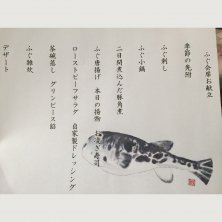 ふぐ会席お献立
季節の先附
ふぐ刺し
ふぐ小鍋
二日間煮込んだ豚角煮
ふぐ唐揚げ 本日の揚物 お凌ぎ寿司
ローストビーフサラダ 自家製ドレッシング
茶碗蒸し グリンピース餡
ふぐ雑炊
デザート